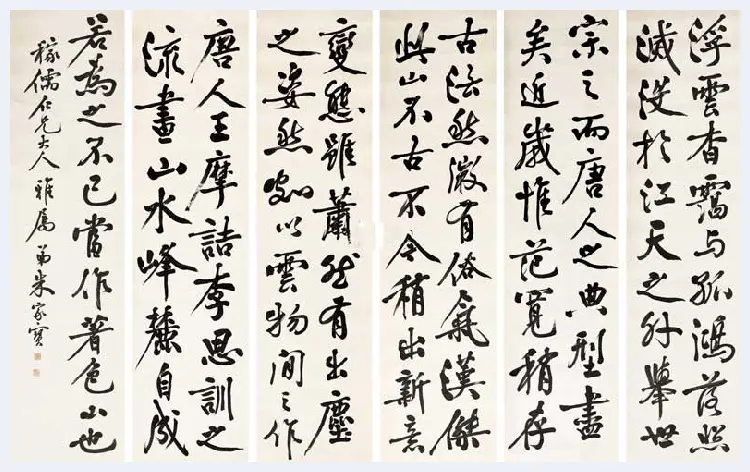 浮雲杳靄与孤鴻落照
滅没於江天之外舉世
宗之而唐人之典型盡
矣近歲惟范寬稍存
古法然微有俗氣漢傑
此山不古不今稍出新意
變態雖蕭然有出塵
之姿然頗以雲物間之作
唐人王摩詰李思訓之
流畫山水峰麓自成
若為之不已當作著色山也
稼儒仁兄大人雅屬 弟朱家寶